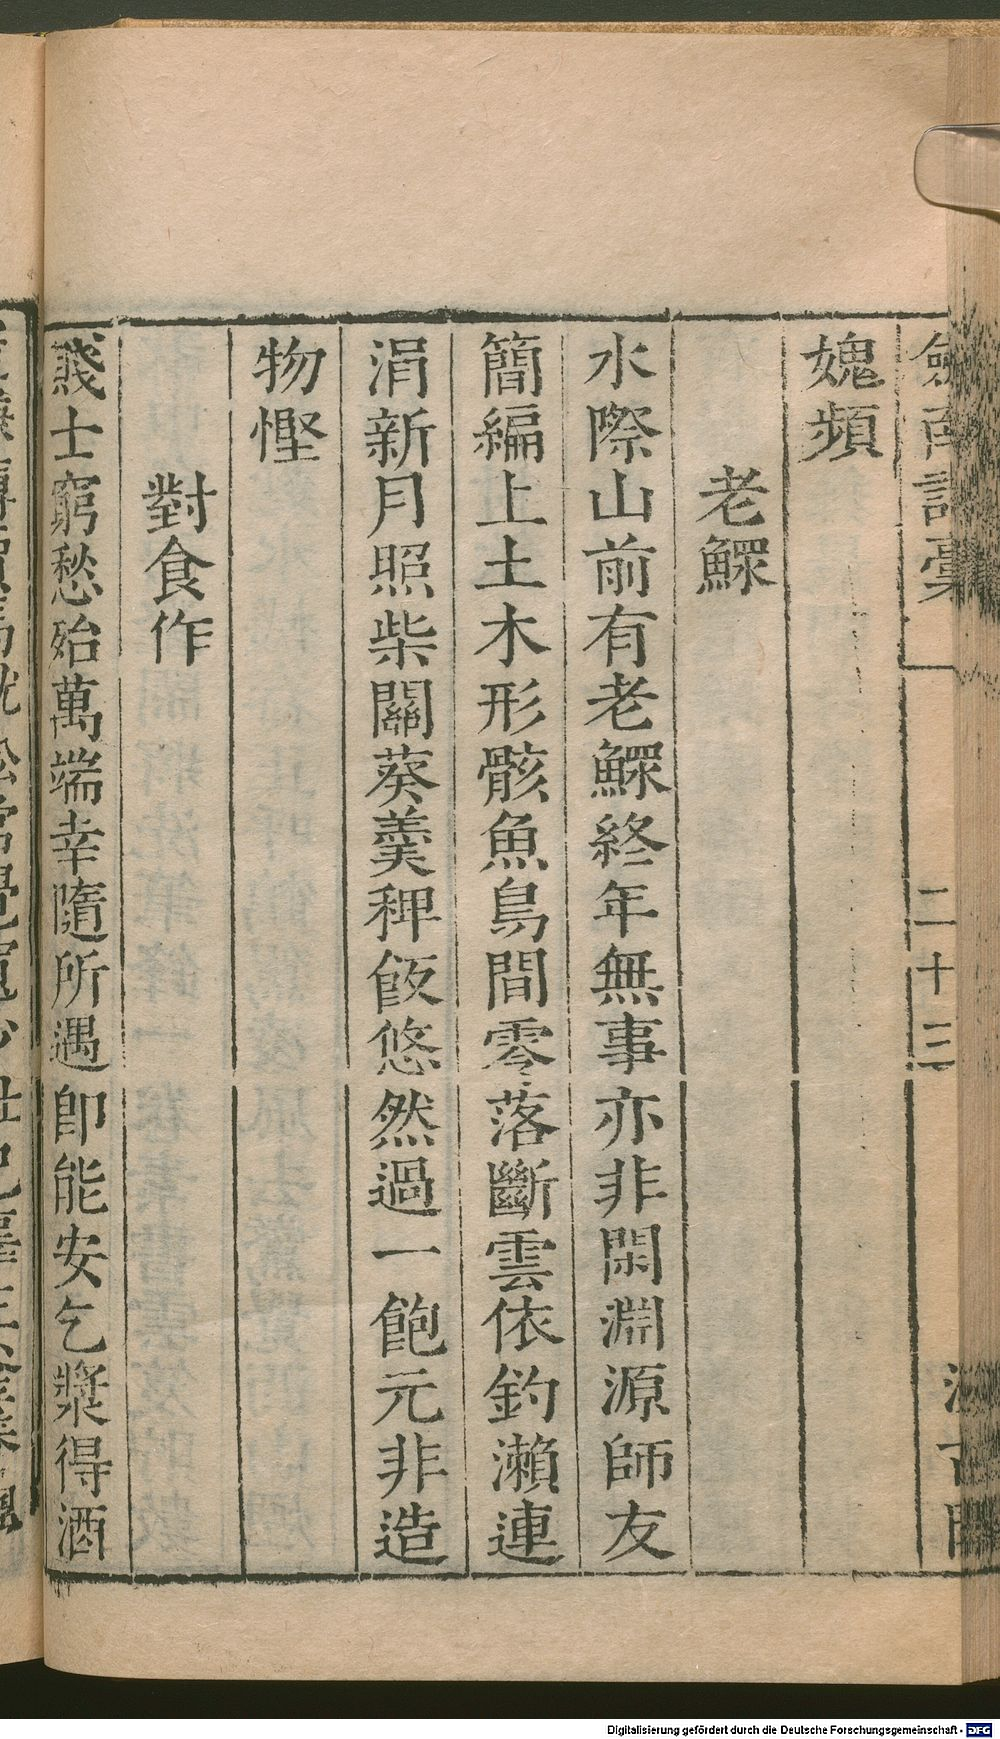 劍南詩藁
二十三
媿頻
老鰥
水際山前有老鰥終年無事亦非閑淵源師友
簡編上土木形骸魚鳥間零落斷雲依釣瀨連
涓新月照柴關葵羹稗飯悠然過一飽元非造
物慳
對食作
賤士窮愁殆萬端幸隨所遇卽能安乞漿得酒
Digitalisierung gefördert durch die Deutsche Forschungsgemeinschaft - DFG